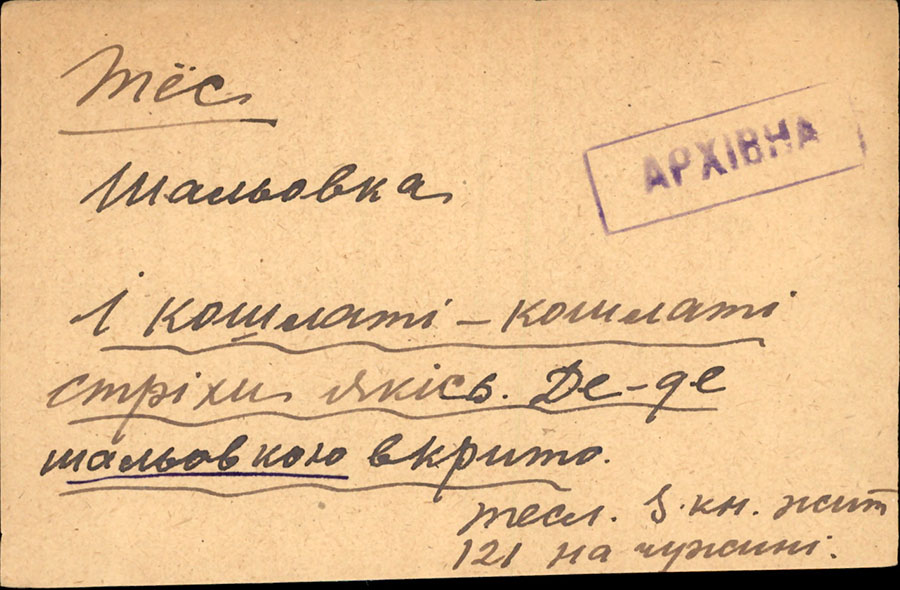 Тёс
АРХІВНА
Шальовка
І кошлаті – кошлаті
стріхи якісь. Де-де
шальовкою вкрито.
Тесл. З кн. жит
121 на чужині.